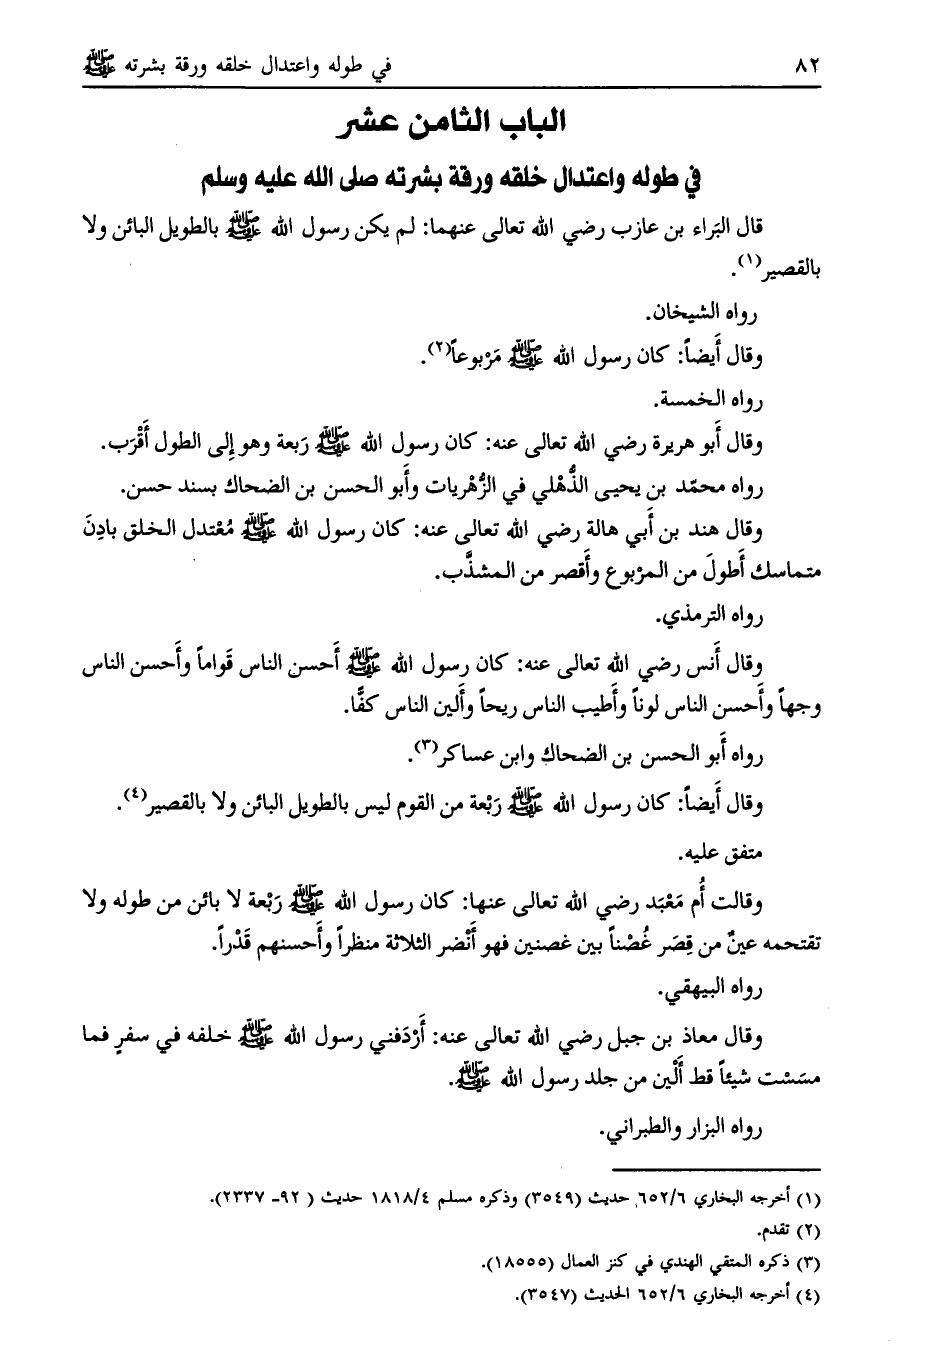 ٨٢
في طوله واعتدال خلقه ورقة بشرته ﷺ
الباب الثامن عشر
في طوله واعتدال خلقه ورقة بشرته صلى الله عليه وسلم
قال البَراء بن عازب رضي الله تعالى عنهما: لم يكن رسول الله ﷺ بالطويل البائن ولا
بالقصير(١).
رواه الشيخان.
وقال أَيضاً: كان رسول الله ﷺ مَرْبوعاً(٢).
رواه الخمسة.
وقال أَبو هريرة رضي الله تعالى عنه: كان رسول الله ﷺ رَبعة وهو إِلى الطول أَقْرَب.
رواه محمّد بن يحيى الذُّهْلي في الزُّهْريات وأَبو الحسن بن الضحاك بسند حسن.
وقال هند بن أَبي هالة رضي الله تعالى عنه: كان رسول الله ﷺ مُعْتدل الخلق بادِنَ
متماسك أَطولَ من المرْبوع وأَقصر من المشذَّب.
رواه الترمذي.
وقال أَنس رضي الله تعالى عنه: كان رسول الله ﷺ أَحسن الناس قَواماً وأَحسن الناس
وجهاً وأَحسن الناس لوناً وأَطيب الناس ريحاً وأَلين الناس كفًّا.
رواه أَبو الحسن بن الضحاك وابن عساكر(٣).
وقال أَيضاً: كان رسول الله ﷺ رَبْعة من القوم ليس بالطويل البائن ولا بالقصير(٤).
متفق عليه.
وقالت أُم مَعْبَد رضي الله تعالى عنها: كان رسول الله ﷺ رَبْعة لا بائن من طوله ولا
تقتحمه عينٌ من قِصَر غُصْناً بين غصنين فهو أَنْضر الثلاثة منظراً وأَحسنهم قَدْراً.
رواه البيهقي.
وقال معاذ بن جبل رضي الله تعالى عنه: أَرْدَفني رسول الله ﷺ خلفه في سفرٍ فما
مسَسْت شيئاً قط أَلْين من جلد رسول الله ﷺ.
رواه البزار والطبراني.
(١) أخرجه البخاري ٦٥٢/٦ حديث (٣٥٤٩) وذكره مسلم ١٨١٨/٤ حديث ( ٩٢- ٢٣٣٧).
(٢) تقدم.
(٣) ذكره المتقي الهندي في كنز العمال (١٨٥٥٥).
(٤) أخرجه البخاري ٦٥٢/٦ الحديث (٣٥٤٧).